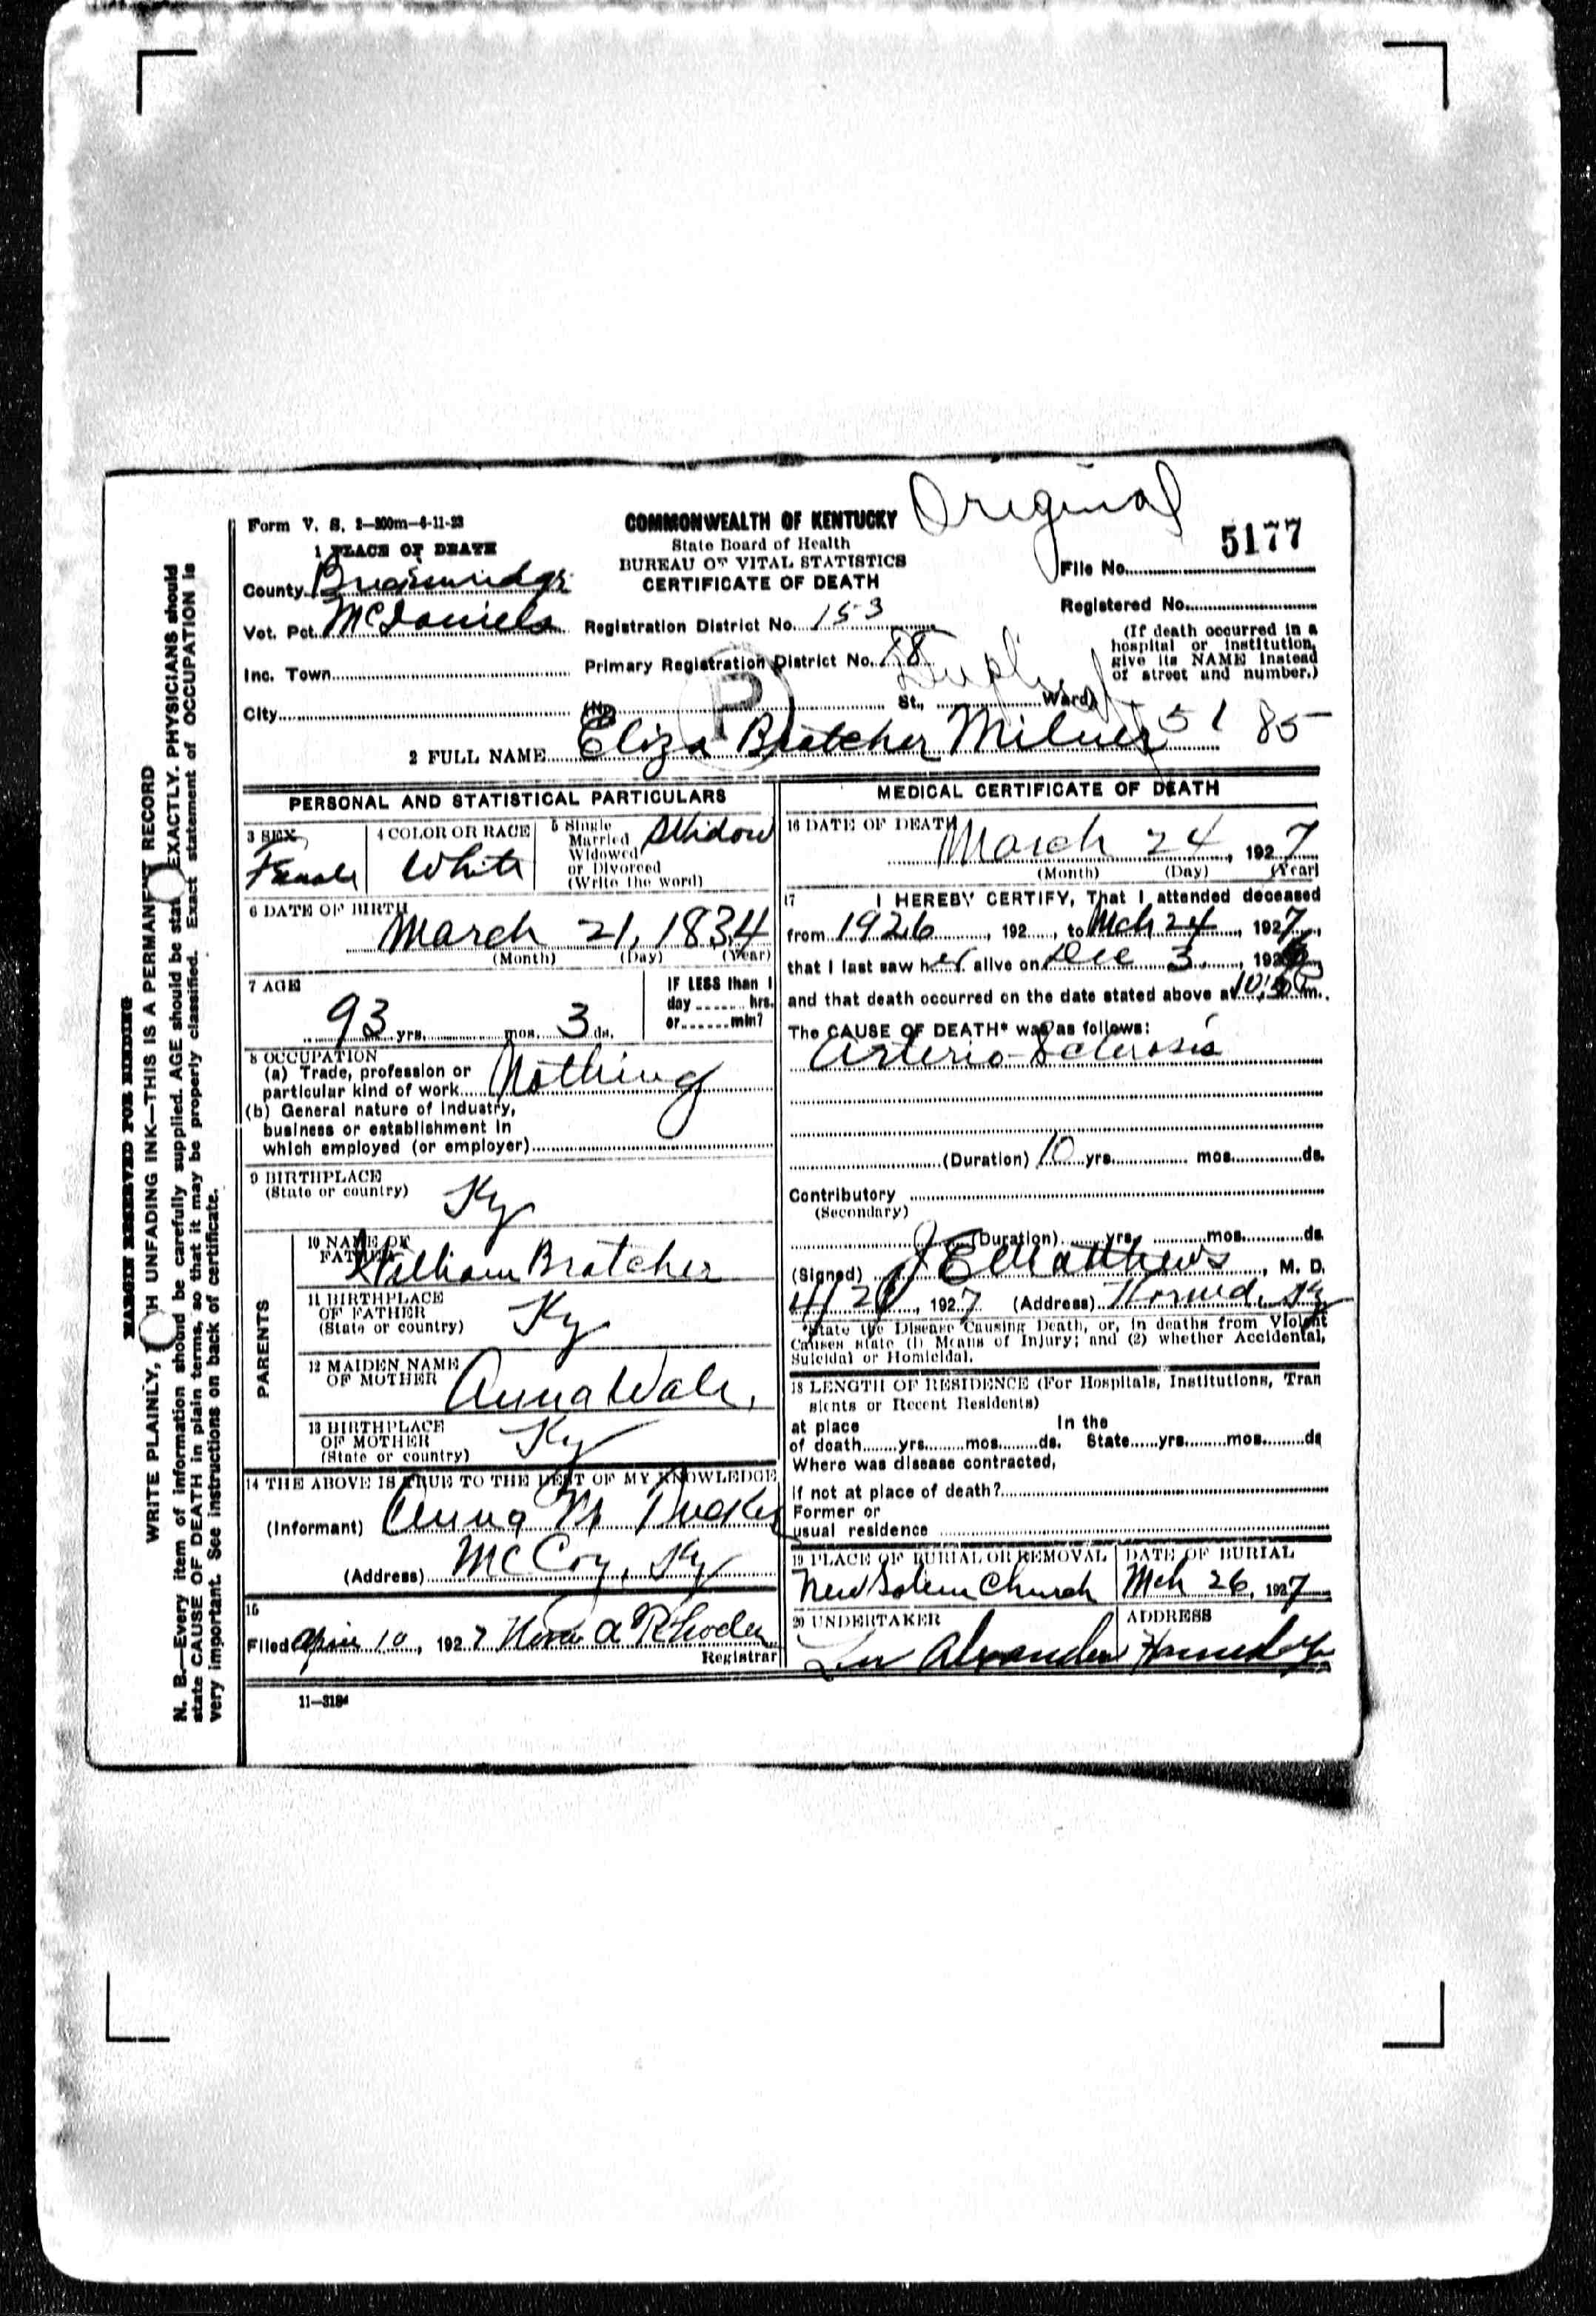 Original
Form V. S. 2—300m—6-11-23
COMMONWEALTH OF KENTUCKY
State Board of Health
BUREAU OF VITAL STATISTICS
CERTIFICATE OF DEATH
5177
File No.
Registered No.
(If death occurred in a hospital or institution, give its NAME instead of street and number.)
1 PLACE OF DEATH
County
Vot. Pct. McDaniels
Registration District No. 153
Inc. Town
Primary Registration District No.
City
(No. St., Ward)
P
2 FULL NAME Eliza Bratcher Milner 51 85
PERSONAL AND STATISTICAL PARTICULARS
3 SEX
Female
4 COLOR OR RACE
White
5 Single
Married
Widowed
or Divorced
(Write the word)
Widow
6 DATE OF BIRTH
March 21, 1834
(Month) (Day) (Year)
7 AGE
93 yrs. mos. 3 ds.
IF LESS than 1
day hrs.
or min?
8 OCCUPATION
(a) Trade, profession or
particular kind of work Nothing
(b) General nature of industry,
business or establishment in
which employed (or employer)
9 BIRTHPLACE
(State or country) Ky
PARENTS
10 NAME OF
FATHER William Bratcher
11 BIRTHPLACE
OF FATHER
(State or country) Ky
12 MAIDEN NAME
OF MOTHER Anna
13 BIRTHPLACE
OF MOTHER
(State or country) Ky
14 THE ABOVE IS TRUE TO THE BEST OF MY KNOWLEDGE
(Informant) Anna M
(Address) McCoy, Ky
15
Filed April 10, 1927 Rhodes
Registrar
11—3184
MEDICAL CERTIFICATE OF DEATH
16 DATE OF DEATH
March 24, 1927
(Month) (Day) (Year)
17 I HEREBY CERTIFY, That I attended deceased
from 1926, 192, to Mch 24, 1927,
that I last saw her alive on Dec 3, 192
and that death occurred on the date stated above at m.
The CAUSE OF DEATH* was as follows:
Arterio-Sclerosis
(Duration) 10 yrs. mos. ds.
Contributory
(Secondary)
(Duration) yrs. mos. ds.
(Signed) J E Matthews, M. D.
1927 (Address) Ky
*State the Disease Causing Death, or, in deaths from Violent
Causes state (1) Means of Injury; and (2) whether Accidental,
Suicidal or Homicidal.
18 LENGTH OF RESIDENCE (For Hospitals, Institutions, Tran
sients or Recent Residents)
at place In the
of death yrs. mos. ds. State yrs. mos. ds
Where was disease contracted,
if not at place of death?
Former or
usual residence
19 PLACE OF BURIAL OR REMOVAL
New Salem Church
DATE OF BURIAL
Mch 26, 1927
20 UNDERTAKER
Alexander
ADDRESS
MARGIN RESERVED FOR BINDING
WRITE PLAINLY, UNFADING INK—THIS IS A PERMANENT RECORD
N. B.—Every item of information should be carefully supplied. AGE should be stated EXACTLY. PHYSICIANS should
state CAUSE OF DEATH in plain terms, so that it may be properly classified. Exact statement of OCCUPATION is
very important. See instructions on back of certificate.